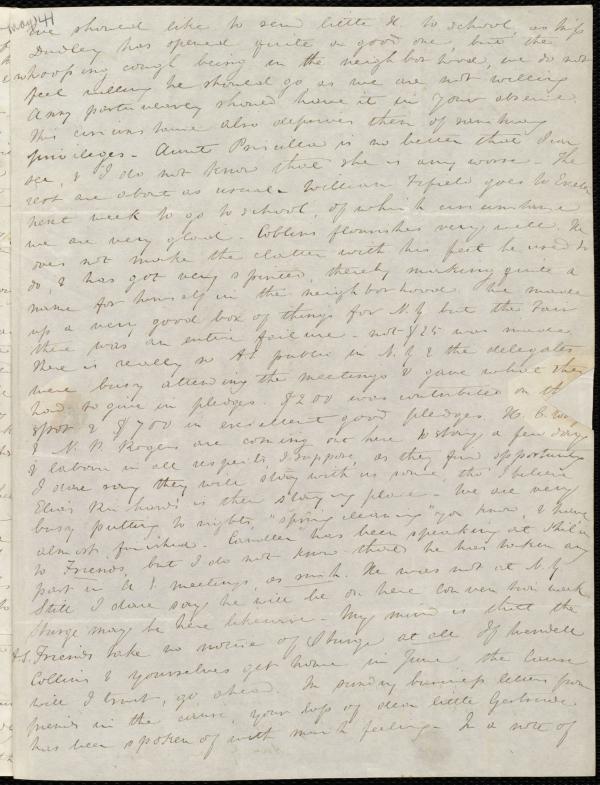 May 41
We should like to send little H. to school, as Miss
Dudley has opened quite a good one, but the
whooping cough being in the neighborhood, we do not
feel willing he should go as we are not willing
Anny particularly should have it in your absence.
This circumstance also deprives them of so many
privileges - Aunt Priscilla is no better that I can
see, & I do not know that she is any worse. The
rest are about as usual. William goes to Exeter
next week to go to school, of which circumstance
we are very glad. Collins flourishes very well. He
does not make the clatter with his feet he used to
do, & has got very spirited, thereby making quite a
name for himself in the neighborhood. We made
up a very good box of things for N.Y but the Fair
there was an entire failure - not $25 was made.
There is really no AS public in N.Y & the delegates
were busy attending the meetings & gave what they
had to give in pledges. $200 was contributed on the
spot & $700 in excellent good pledges. H. C.
& N. P. Rogers are coming out here to stay a few days
& labour in all respects, I suppose, as they find opportunity
I dare say they will stay with us some, tho' I believe
Elias Richards' is their staying place. We are very
busy putting to rights, "spring cleaning" you know, & have
almost finished. has been speaking at Phil'a
to Friends, but I do not know that he has taken any
part in A S. meetings, as such. He was not at N.Y
Still I dare say he will be on here Convention week
Sturge may be here likewise. My mind is that the
A.S. Friends take no notice of Sturge at all. If Wendell
Collins & yourselves get home in June the Cause
will I trust, go ahead. In sundry business letters from
friends in the cause, your loss of dear little Gertrude
has been spoken of with much feeling. In a note of